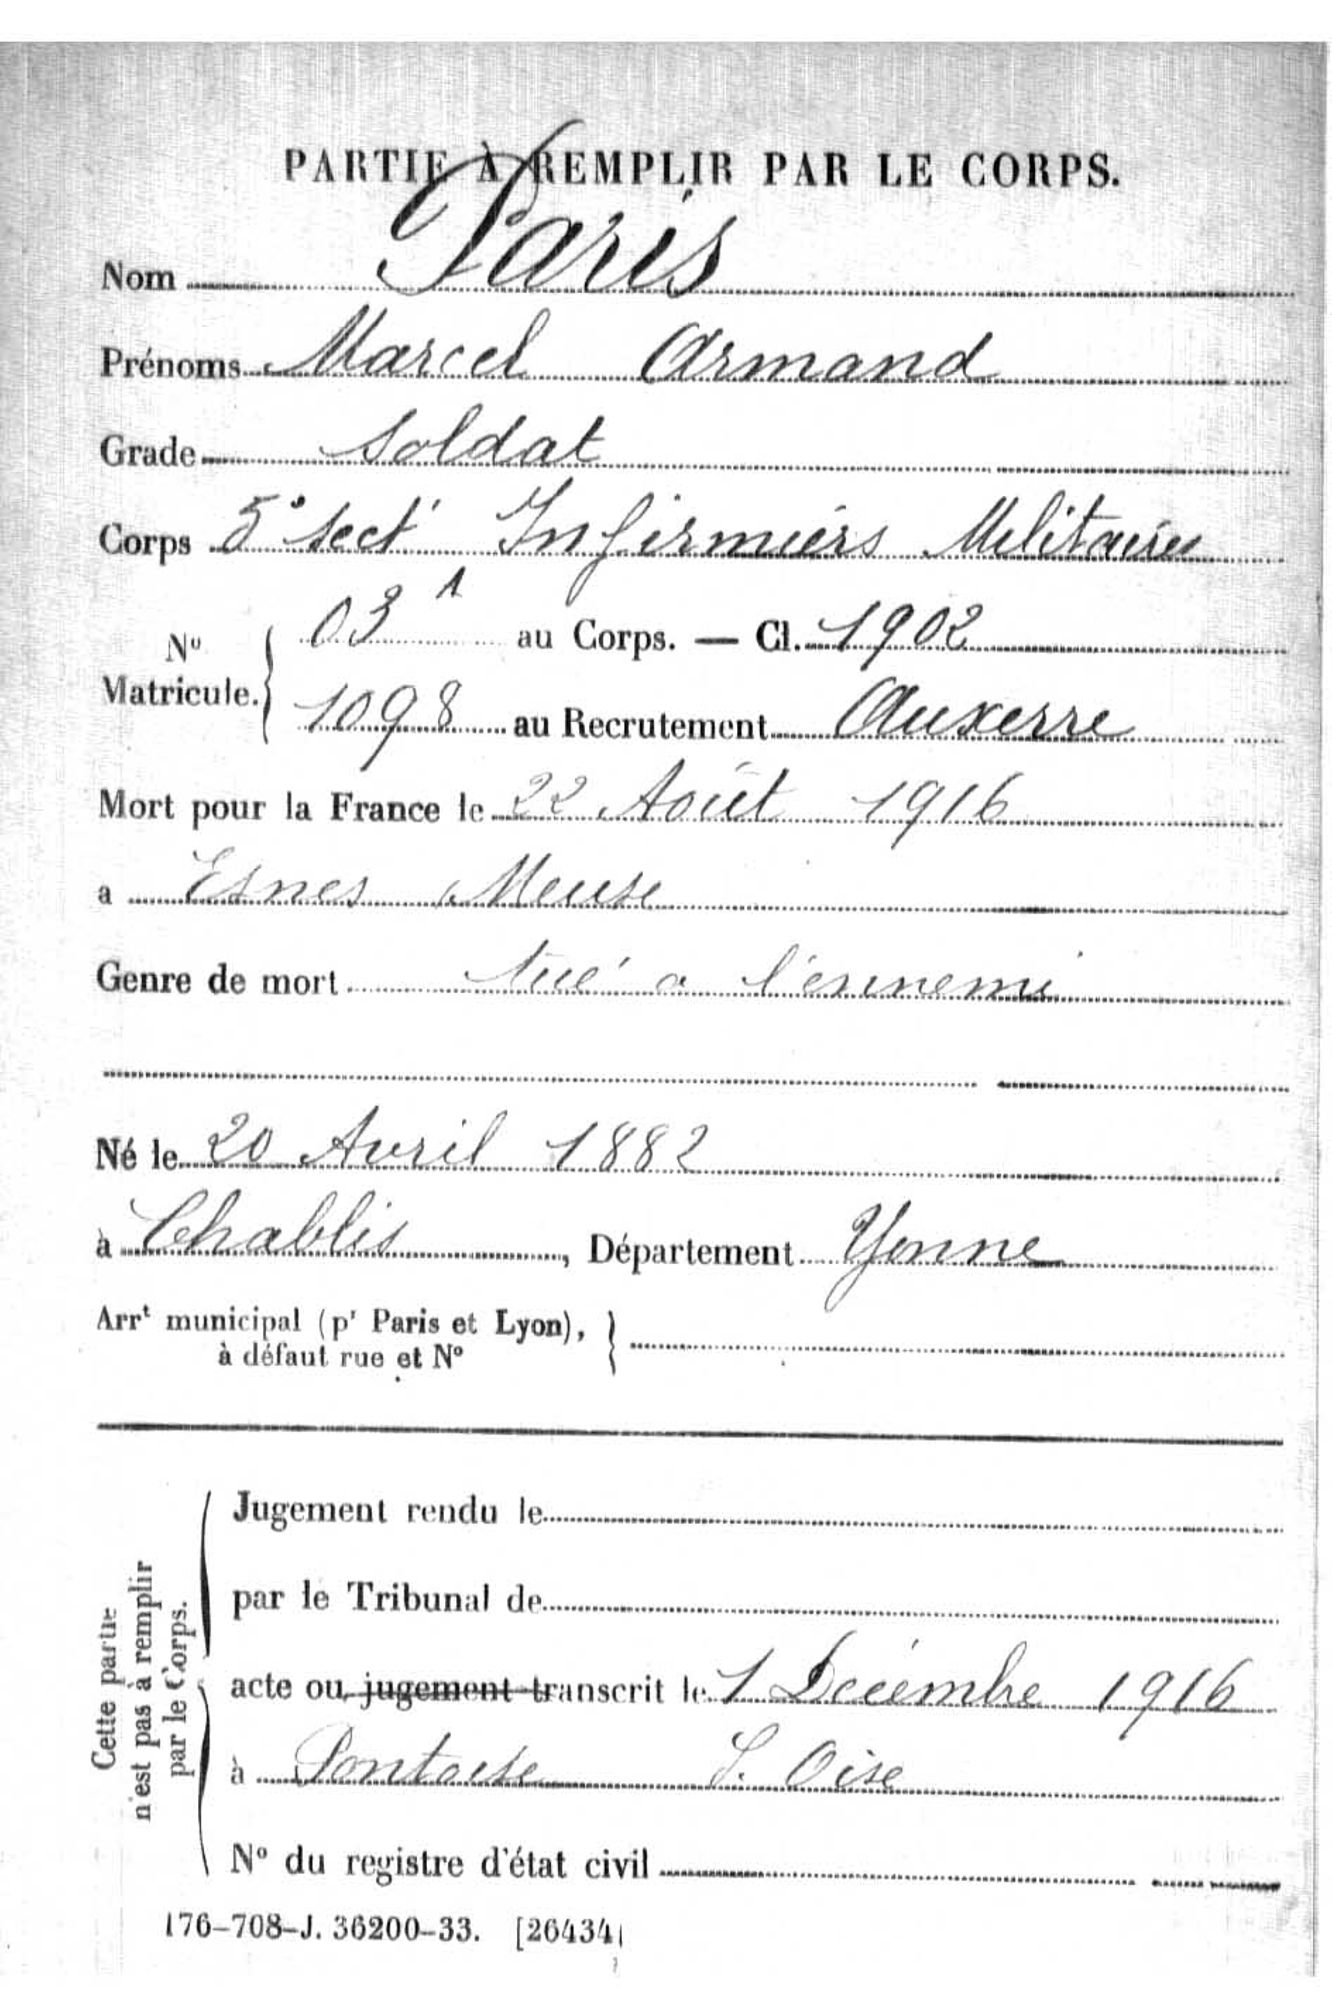 PARTIE À REMPLIR PAR LE CORPS.
Nom Paris
Prénoms Marcel Armand
Grade Soldat
Corps 5e Sect Infirmiers Militaires
No Matricule. { 03 A au Corps. — Cl. 1902
1098 au Recrutement Auxerre
Mort pour la France le 22 Août 1916
a Esnes Meuse
Genre de mort tué a l'ennemi
Né le 20 Avril 1882
à Chablis, Département Yonne
Arrt municipal (pr Paris et Lyon),
à défaut rue et No
Cette partie
n'est pas à remplir
par le Corps.
Jugement rendu le
par le Tribunal de
acte ou jugement transcrit le 1 Décembre 1916
à Pontoise S. Oise
No du registre d'état civil
176-708-J. 36200-33. [26434]